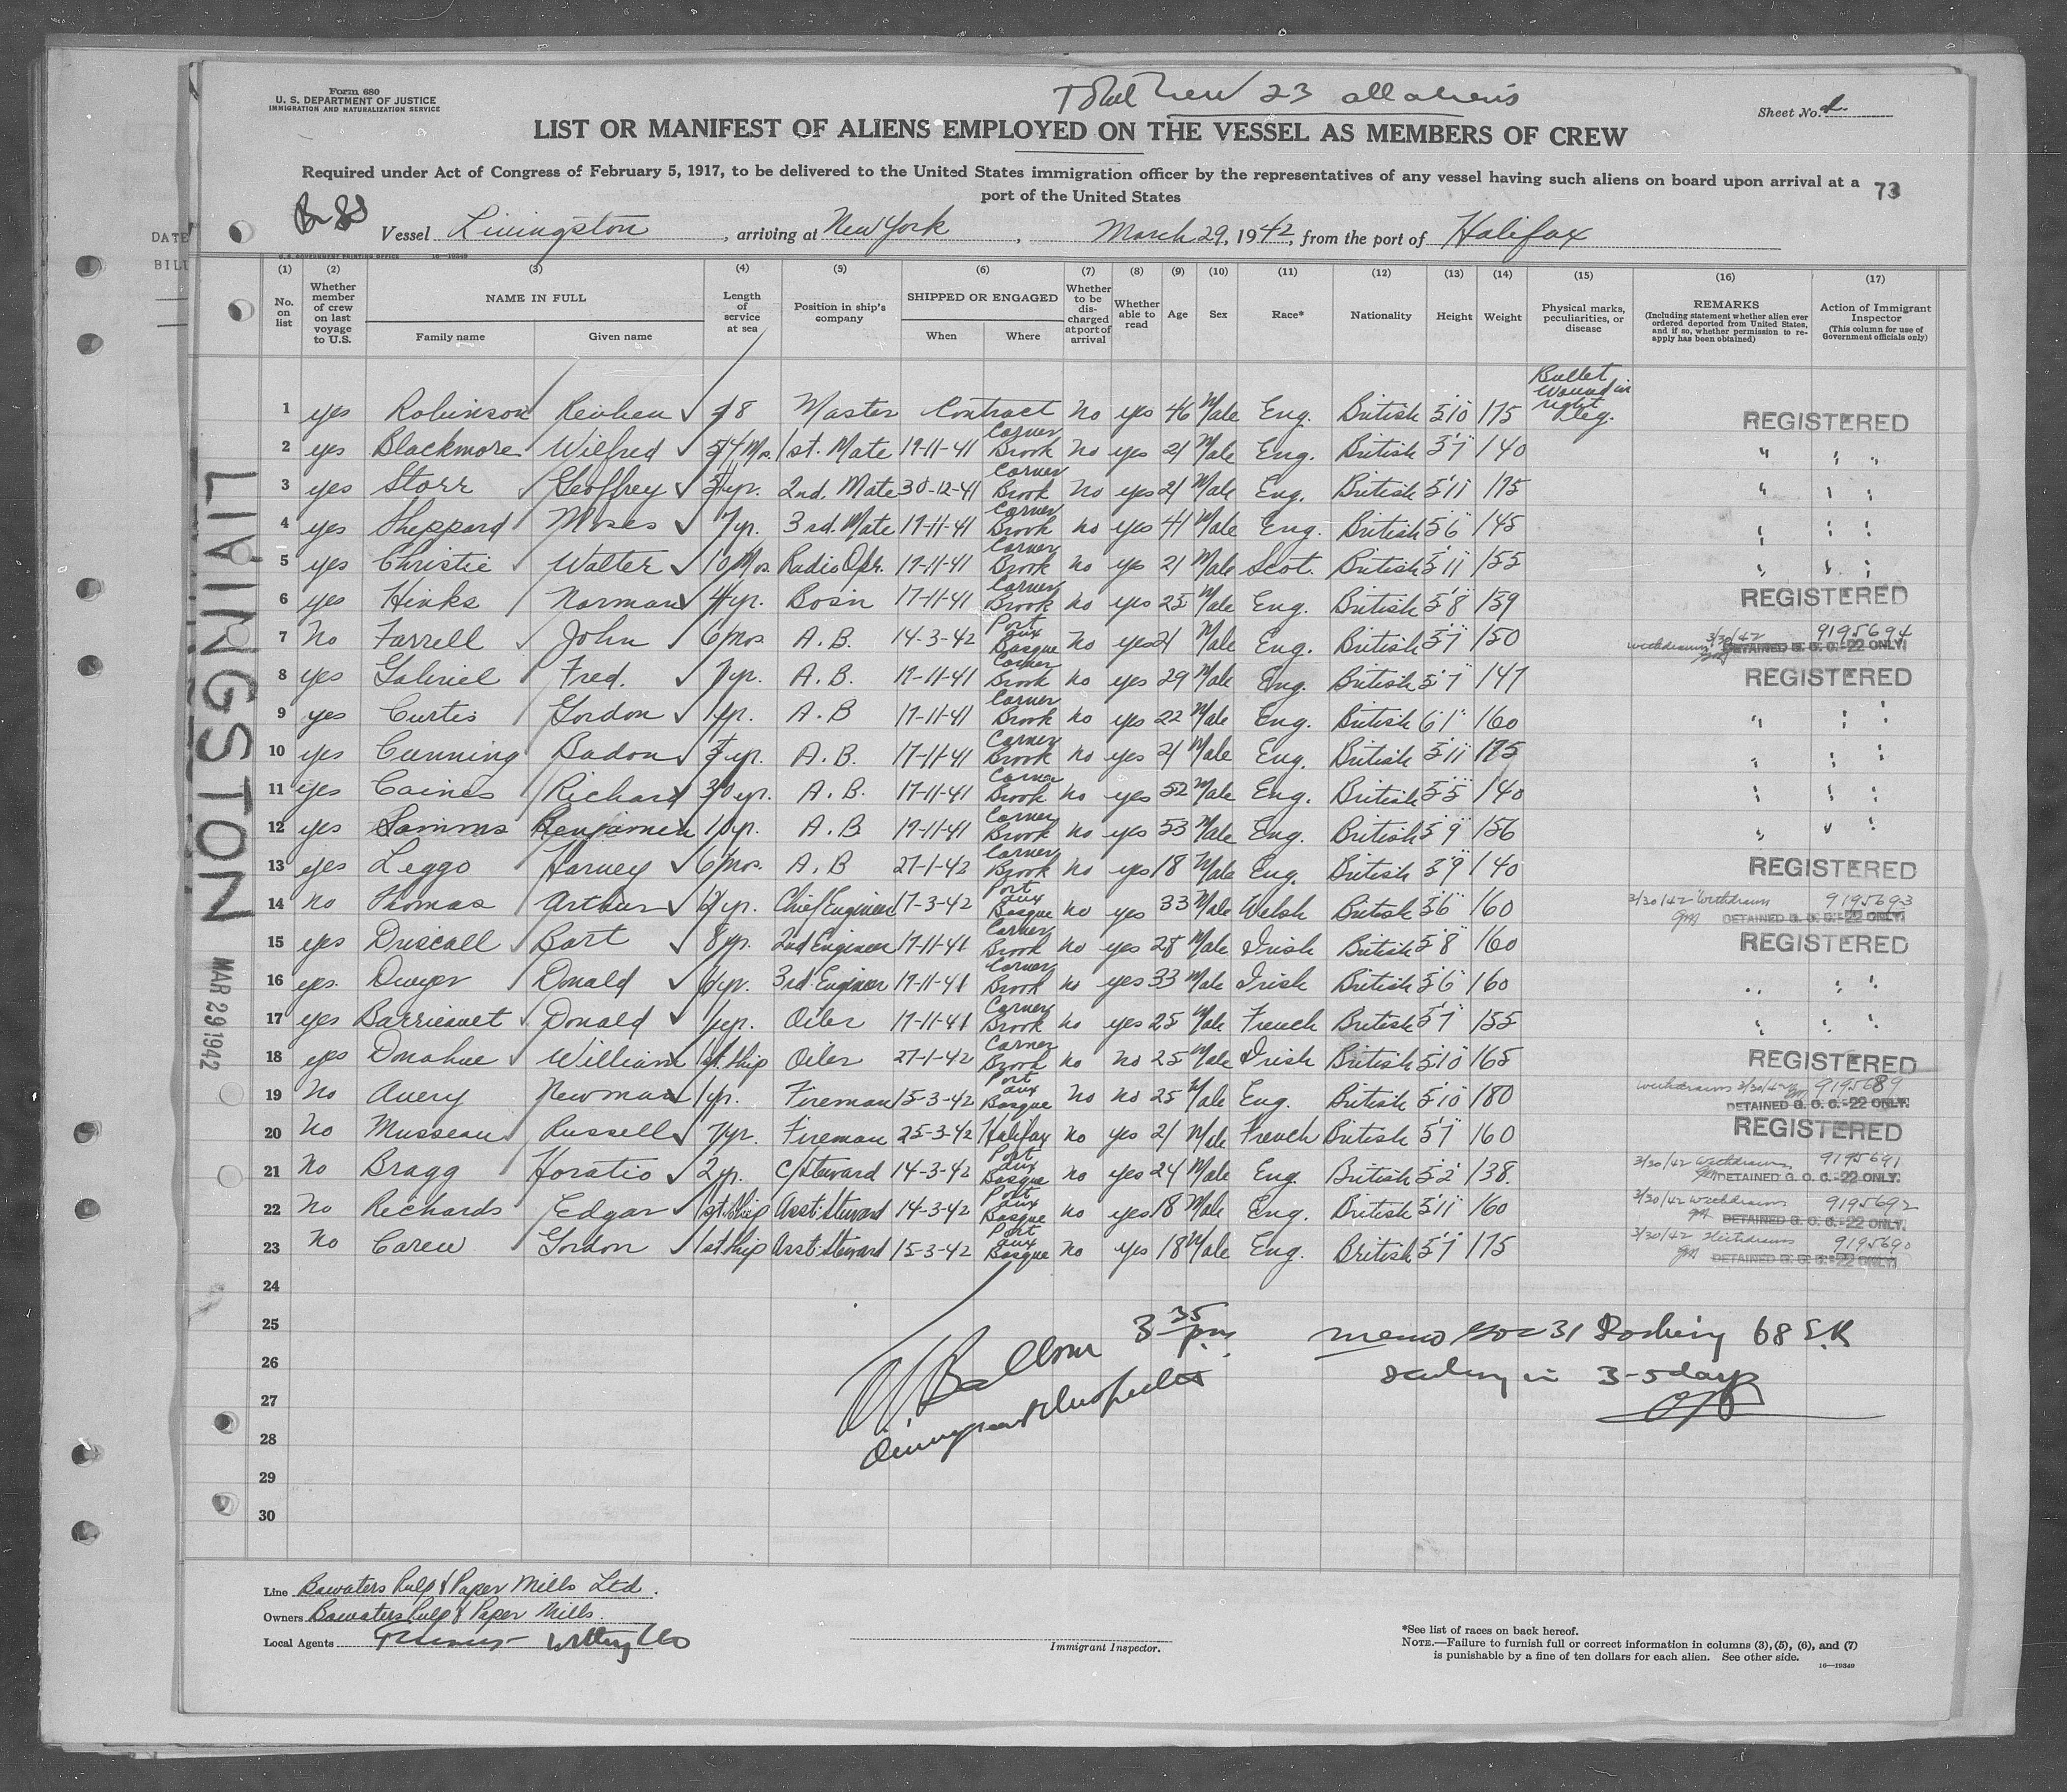 Total Crew 23 all aliens
Form 680
U. S. DEPARTMENT OF JUSTICE
IMMIGRATION AND NATURALIZATION SERVICE
Sheet No.
LIST OR MANIFEST OF ALIENS EMPLOYED ON THE VESSEL AS MEMBERS OF CREW
Required under Act of Congress of February 5, 1917, to be delivered to the United States immigration officer by the representatives of any vessel having such aliens on board upon arrival at a
port of the United States
73
Br SS Vessel Livingston, arriving at New York, March 29, 1942, from the port of Halifax
DATE
BILL
U. S. GOVERNMENT PRINTING OFFICE 16—19349
(1) (2) (3) (4) (5) (6) (7) (8) (9) (10) (11) (12) (13) (14) (15) (16) (17)
No. on list
Whether member of crew on last voyage to U.S.
NAME IN FULL
Family name
Given name
Length of service at sea
Position in ship's company
SHIPPED OR ENGAGED
When
Where
Whether to be discharged at port of arrival
Whether able to read
Age
Sex
Race*
Nationality
Height
Weight
Physical marks, peculiarities, or disease
REMARKS
(Including statement whether alien ever ordered deported from United States, and if so, whether permission to reapply has been obtained)
Action of Immigrant Inspector
(This column for use of Government officials only)
1 yes Robinson Reuben 18 Master Contract No yes 46 Male Eng. British 5'10" 175 Bullet wound in right leg. REGISTERED
2 yes Blackmore Wilfred Mos. 1st. Mate 17-11-41 Corner Brook No yes 21 Male Eng. British 5'7" 140 " " "
3 yes Storr Geoffrey yr. 2nd. Mate 30-12-41 Corner Brook No yes 21 Male Eng. British 5'11" 175 " " "
4 yes Sheppard Moses 7yr. 3rd. Mate 17-11-41 Corner Brook no yes 41 Male Eng. British 5'6" 145 " " "
5 yes Christie Walter 10 Mos. Radio Opr. 17-11-41 Corner Brook no yes 21 Male Scot. British 5'11" 155 " " "
6 yes Hinks Norman 4yr. Bosn 17-11-41 Corner Brook no yes 25 Male Eng. British 5'8" 159 REGISTERED
7 No Farrell John 6 mos. A.B. 14-3-42 Port aux Basque No yes 21 Male Eng. British 5'7" 150 withdrawn 3/30/42 9195694 DETAINED G. O. C.-22 ONLY.
8 yes Gabriel Fred. 7yr. A.B. 17-11-41 Corner Brook no yes 29 Male Eng. British 5'7" 147 REGISTERED
9 yes Curtis Gordon 1yr. A.B 17-11-41 Corner Brook no yes 22 Male Eng. British 6'1" 160 " " "
10 yes Cunning Badon yr. A.B. 17-11-41 Corner Brook no yes 21 Male Eng. British 5'11" 175 " " "
11 yes Caines Richard 30yr. A.B. 17-11-41 Corner Brook no yes 52 Male Eng. British 5'5" 140 " " "
12 yes Samms Benjamin 10yr. A.B 17-11-41 Corner Brook no yes 53 Male Eng. British 5'9" 156 " " "
13 yes Leggo Harvey 6 mos. A.B 27-1-42 Corner Brook no yes 18 Male Eng. British 5'9" 140 REGISTERED
14 no Thomas Arthur 12yr. Chief Engineer 17-3-42 Port aux Basque no yes 33 Male Welsh British 5'6" 160 3/30/42 Withdrawn 9195693 DETAINED G. O. C.-22 ONLY.
15 yes Driscall Bart 8yr. 2nd Engineer 17-11-41 Corner Brook no yes 28 Male Irish British 5'8" 160 REGISTERED
16 yes. Dwyer Donald 6yr. 3rd. Engineer 17-11-41 Corner Brook no yes 33 Male Irish British 5'6" 160 " " "
17 yes Barrieauet Donald 1yr. Oiler 17-11-41 Corner Brook no yes 25 Male French British 5'7" 155 " " "
18 yes Donahue William 1st. ship Oiler 27-1-42 Corner Brook no no 25 Male Irish British 5'10" 165 REGISTERED
19 No Avery Newman 1yr. Fireman 15-3-42 Port aux Basque No no 25 Male Eng. British 5'10" 180 withdrawn 3/30/42 9195689 DETAINED G. O. C.-22 ONLY.
20 No Musseau Russell 7yr. Fireman 25-3-42 Halifax no yes 21 Male French British 5'7" 160 REGISTERED
21 No Bragg Horatio 2yr. c/steward 14-3-42 Port aux Basque no yes 24 Male Eng. British 5'2" 138. 3/30/42 Withdrawn 9195691 DETAINED G. O. C.-22 ONLY.
22 No Richards Edgar 1st. ship Asst. Steward 14-3-42 Port aux Basque no yes 18 Male Eng. British 5'11" 160 3/30/42 withdrawn 9195692 DETAINED G. O. C.-22 ONLY.
23 No Carew Gordon 1st ship Asst. Steward 15-3-42 Port aux Basque No yes 18 Male Eng. British 5'7" 175 3/30/42 Withdrawn 9195690 DETAINED G. O. C.-22 ONLY.
24
25
26
27
28
29
30
LIVINGSTON
MAR 29 1942
3 35 pm.
Immigrant Inspector
memo 31 68 S.R
3-5 days
Line Bowaters Pulp & Paper Mills Ltd.
Owners Bowaters Pulp & Paper Mills.
Local Agents
Immigrant Inspector.
*See list of races on back hereof.
NOTE.—Failure to furnish full or correct information in columns (3), (5), (6), and (7)
is punishable by a fine of ten dollars for each alien. See other side.
16—19349